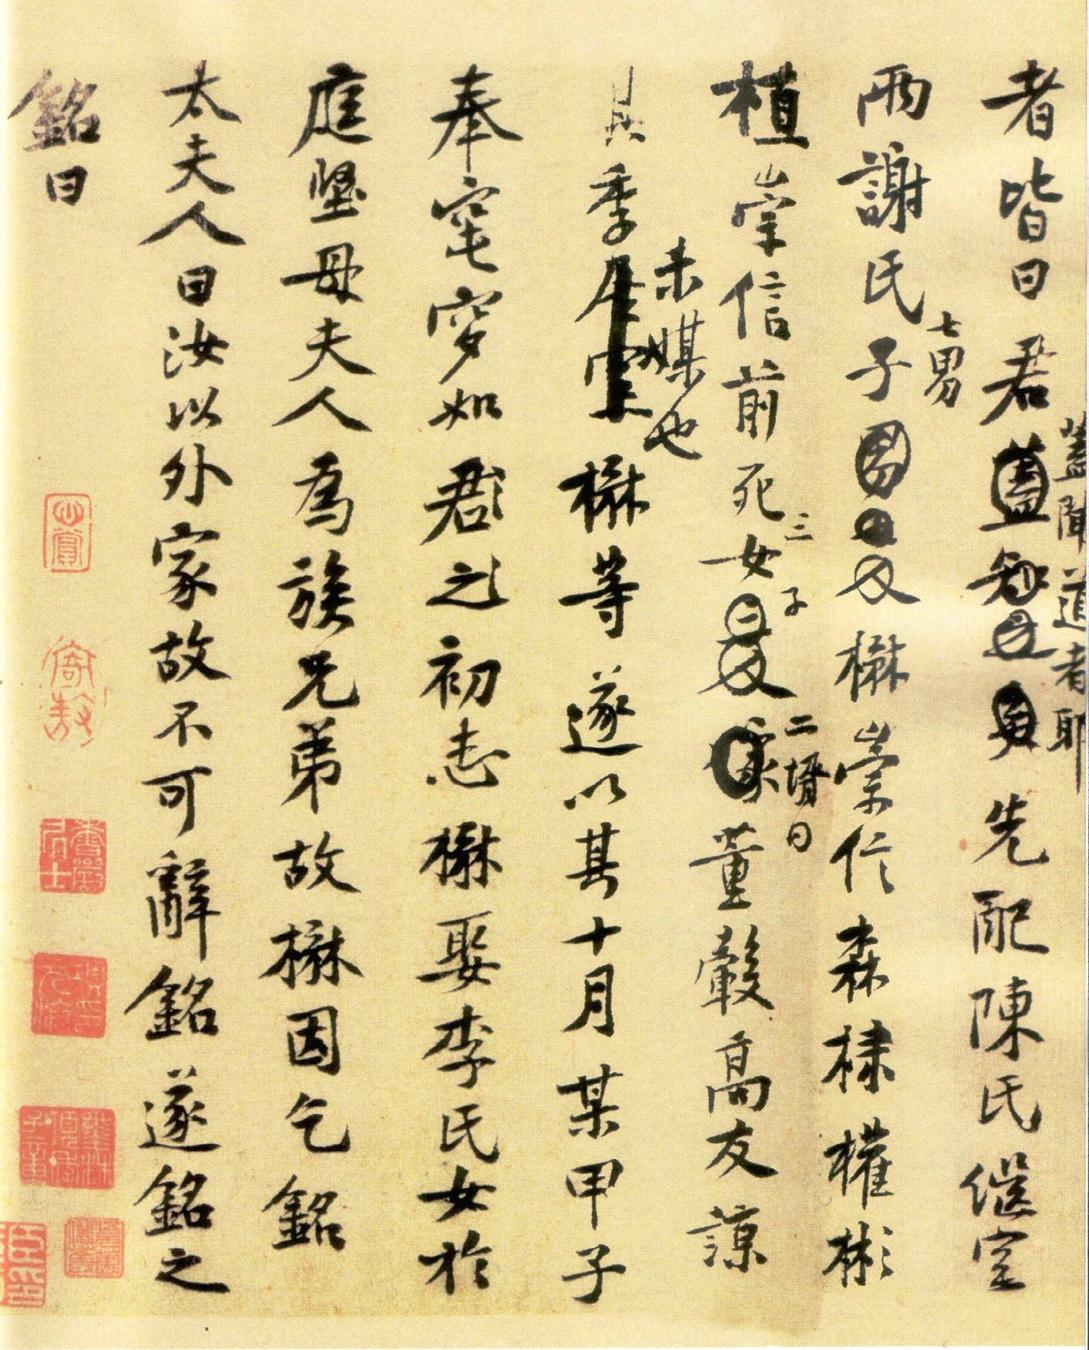 蓋聞道者耶
者皆曰君蓋先配陳氏繼室
七男
兩謝氏子男及崇信森棣權彬
三子
二壻曰
植崇信前死女二及家董轂高友諒
未媒也
其季在室等遂以其十月某甲子
奉窀穸如君之初志娶李氏女於
庭堅母夫人為族兄弟故因乞銘
太夫人曰汝以外家故不可辭銘遂銘之
銘曰
心賞
寄敖
香嚴居士